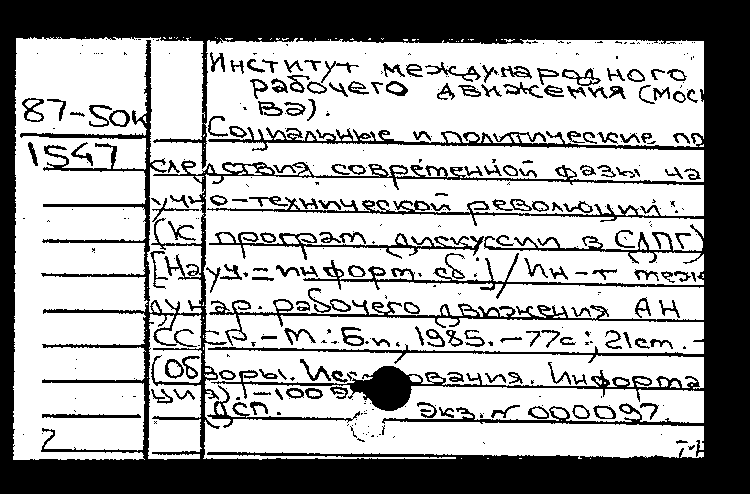 Институт международного
рабочего движения (Моск
ва).
87-50к
Социальные и политические по
1547
следствия современной фазы на
учно-технической революции:
(К програм. дискуссии в СДПГ)
[Науч.-информ. сб.] / Ин-т меж
дунар. рабочего движения АН
СССР.-М.: Б.и., 1985.-77с.; 21см.-
(Обзоры. Исследования. Информа
ция).-100 э
ДСП. Экз. № 000097.
2